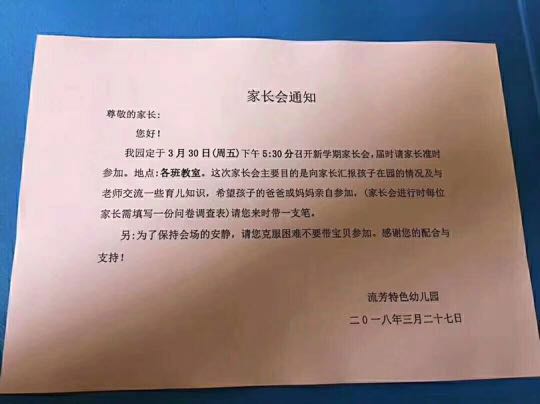 家长会通知
尊敬的家长:
您好!
我园定于3月30日(周五)下午5:30分召开新学期家长会,届时请家长准时
参加。地点:各班教室。这次家长会主要目的是向家长汇报孩子在园的情况及与
老师交流一些育儿知识,希望孩子的爸爸或妈妈亲自参加,(家长会进行时每位
家长需填写一份问卷调查表)请您来时带一支笔。
另:为了保持会场的安静,请您克服困难不要带宝贝参加。感谢您的配合与
支持!
流芳特色幼儿园
二0一八年三月二十七日